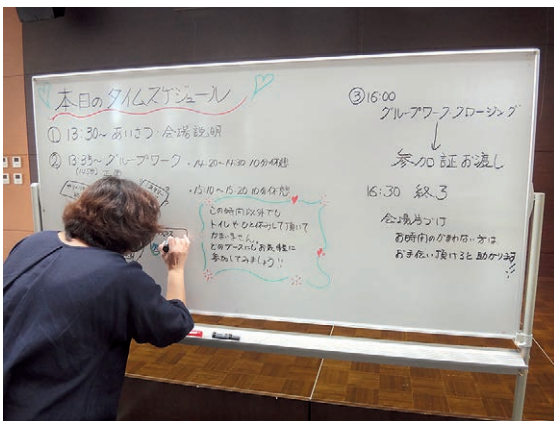 本日のタイムスケジュール
① 13:30〜 あいさつ・会場説明
② 13:35〜 グループワーク
・14:20〜14:30 10分休憩
・15:10〜15:20 10分休憩
この時間以外でも
トイレやひと休みして頂いて
かまいません。
どのブースにもお気軽に
参加してみましょう!!
③ 16:00
グループワーククロージング
↓
参加証お渡し
16:30 終了
会場片づけ
お時間のかまわない方は
お手伝い頂けると助かります!!